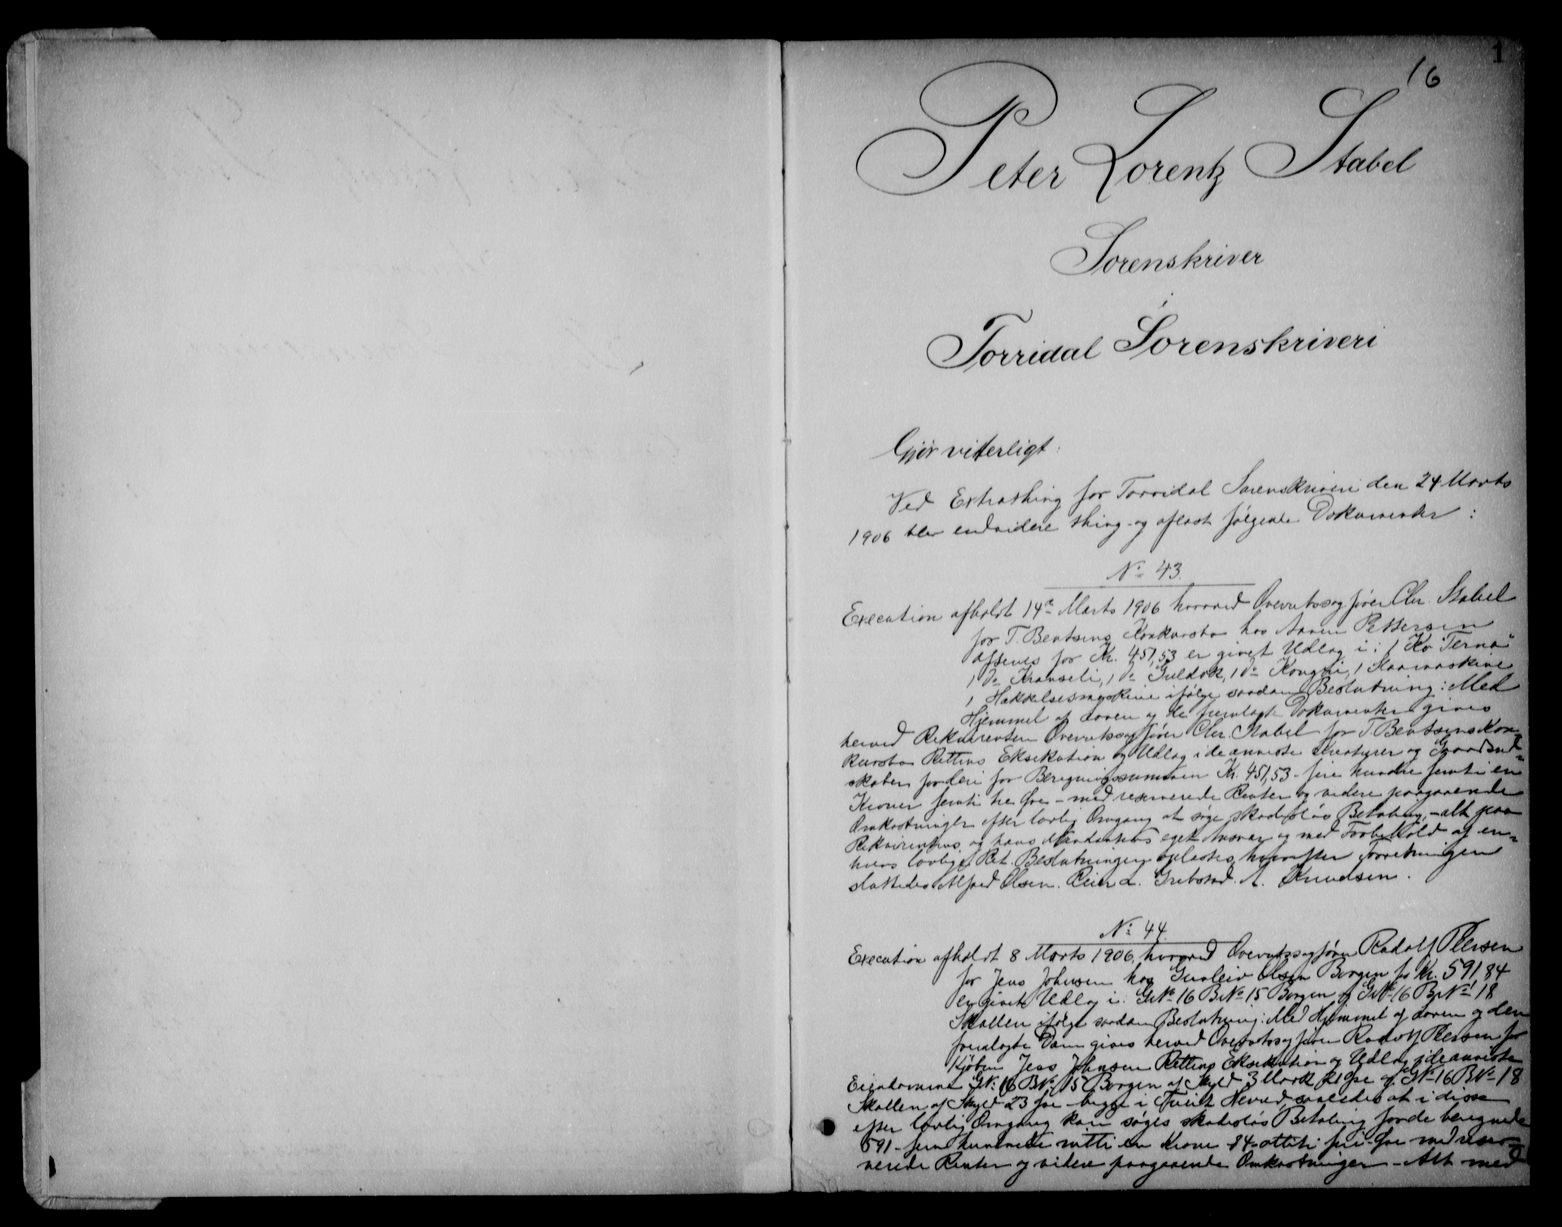 1
16
Peter Lorentz Stabel
Sorenskriver
i
Torridal Sorenskriveri
Gjør vitterligt:
Ved Extrathing for Torridal Sorenskriveri den 24 Marts
1906 blev endvidere thing- og aflæst følgende Dokumenter:
No 43.
Execution afholdt 14de Marts 1906 hvorved Overretssagfører Chr. Stabel
for T. Bentsens Konkursbo hos Aanen Pettersen
for Kr. 451,53 er givet Udlæg i: 1 Ko "Terna"
1 do Kranseli, 1 do Guldok, 1 do Kongeli, 1 Slaamaskine
1 Hakkelsesmaskine ifølge saadan Beslutning: Med
Hjemmel af Loven og de fremlagte Dokumenter gives
herved Rekvirenten Overretssagfører Chr. Stabel for T. Bentsens Kon-
kursbo Rettens Eksekution og Udlæg i de anviste Kreaturer og Gaardsred-
skaber forderi for Beregningssummen Kr. 451,53 - fire hundre femti en
Kroner femti tre Øre - med reserverede Renter og videre paagaaende
Omkostninger efter lovlig Omgang at søge skadesløs Betaling, - alt paa
Rekvirentens og hans eget Ansvar og med Forbehold af en-
hvers lovlige Ret. Beslutningen oplæstes, hvorefter Forretningen
sluttedes. Alfred Olsen. Reier L. Grebstad. A. Knudsen.
No 44.
Execution afholdt 8 Marts 1906, hvorved Overretssagfører Rudolf Petersen
for Jens Johnsen hos Gunleiv Olsen Borgen for Kr. 591,84
er givet Udlæg i: GNo 16 BNo 15 Borgen og GNo 16 BrNo 18
Skallen ifølge saadan Beslutning: Med Hjemmel af Loven og den
fremlagte Dom gives herved Overretssagfører Rudolf Petersen for
Kjøbm Jens Johnsen Rettens Eksekution og Udlæg i de anviste
Eiendomme GNo 16 BNo 15 Borgen af Skyld 3 Mark 21 Øre og GNo 16 BNo 18
Skallen af Skyld 23 Øre - begge i Tveit Herred saaledes at i disse
efter lovlig Omgang kan søges skadesløs Betaling for de beregnede
591 - fem hundrede nitti en Krone 84 - otteti fire Øre med reser-
verede Renter og videre paagaaende Omkostninger - Alt med